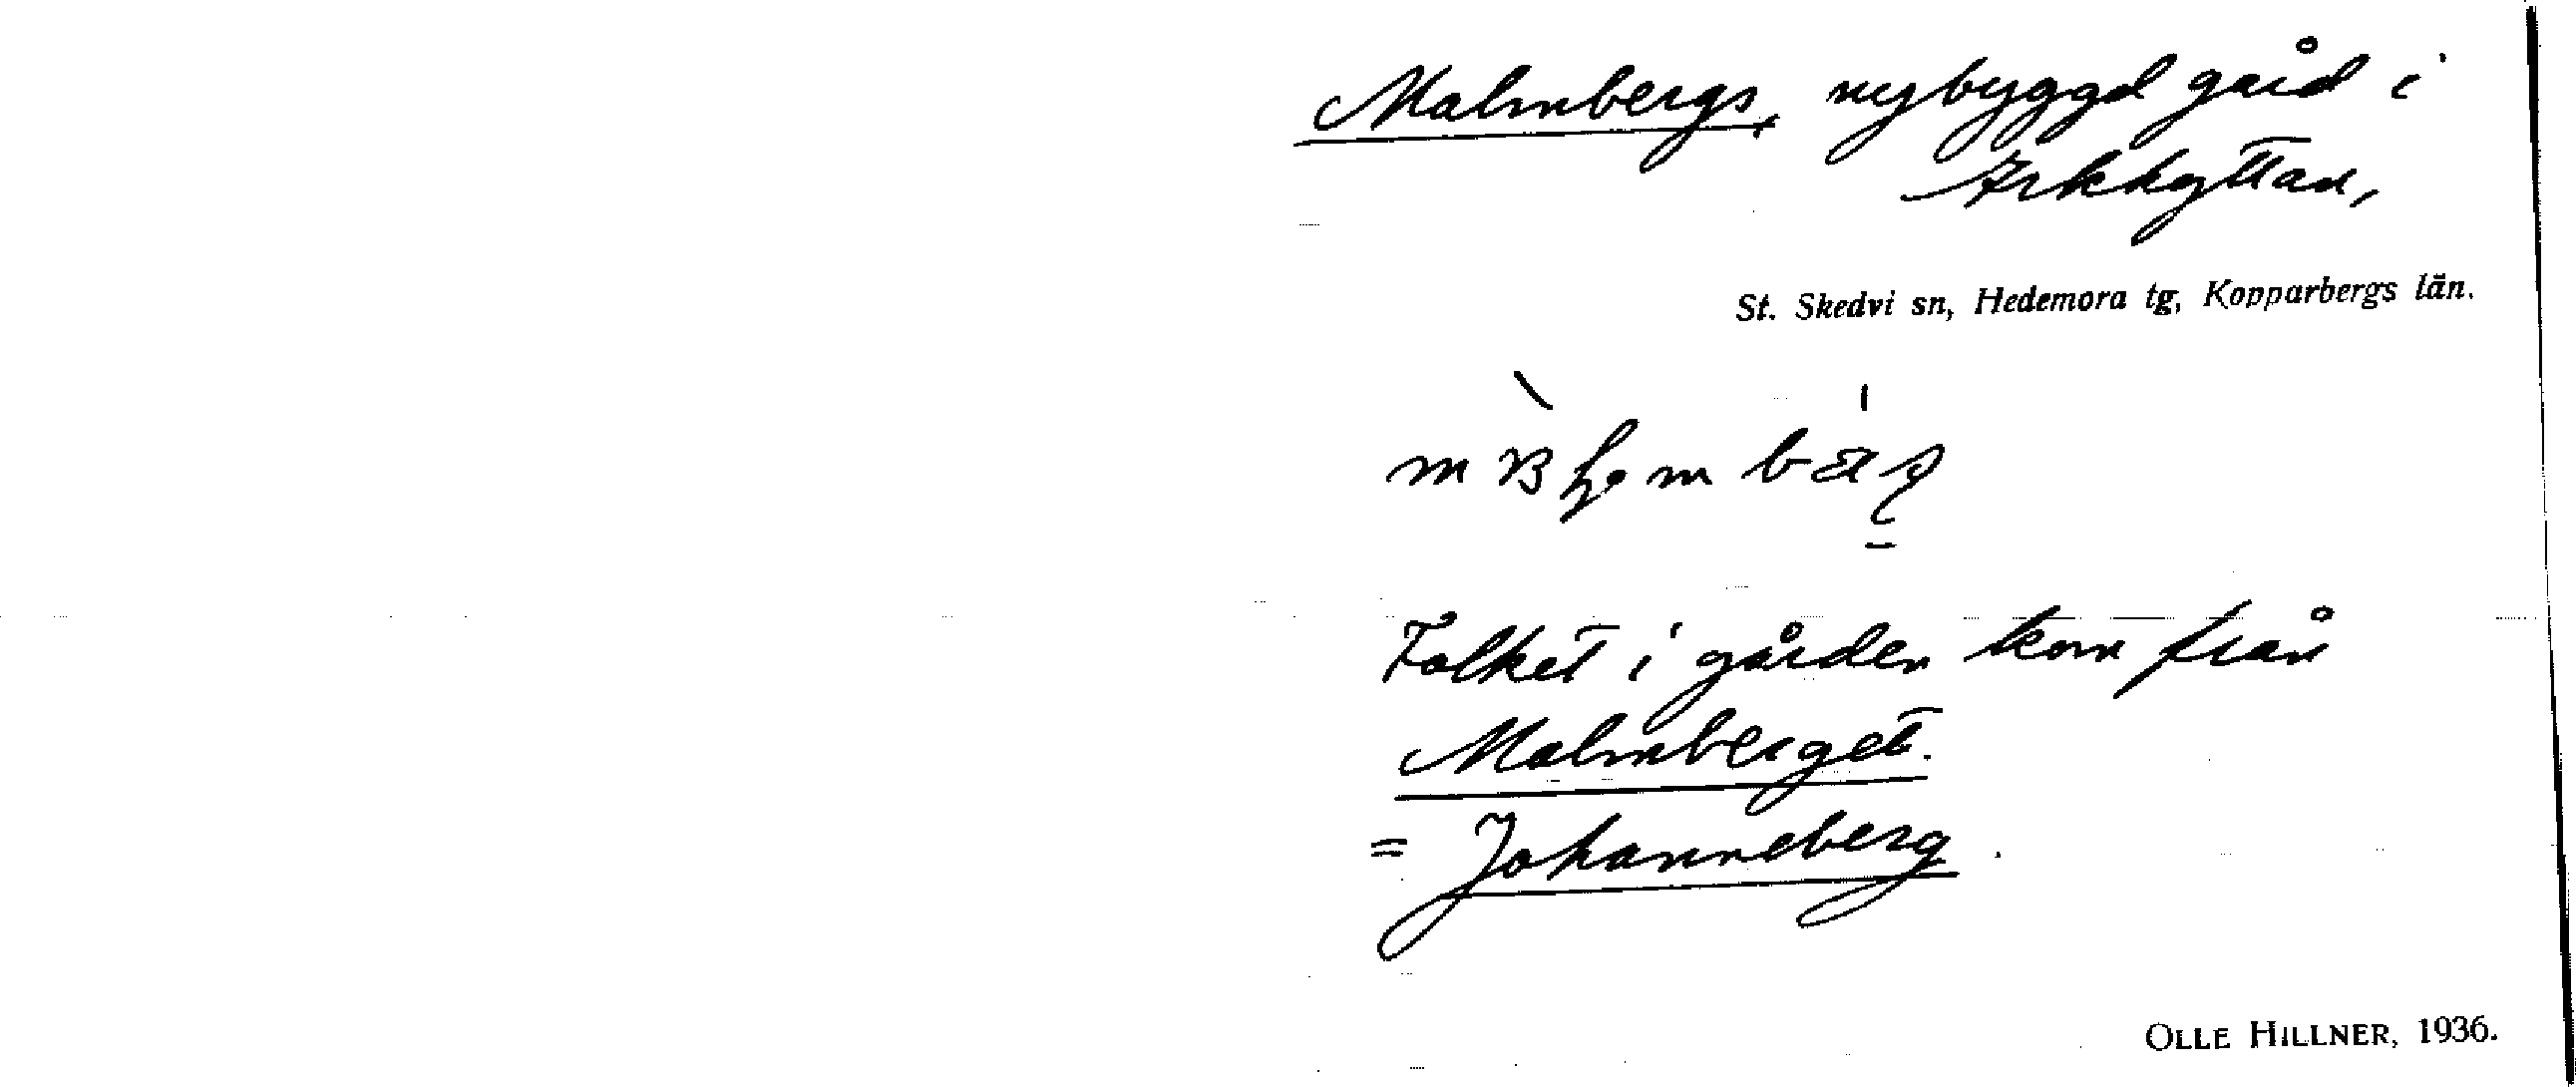 Malmbergs, nybyggd gård i
Arkhyttan,
St. Skedvi sn, Hedemora tg, Kopparbergs län.
Folket i gården kom från
Malmberget.
= Johanneberg.
OLLE HILLNER, 1936.